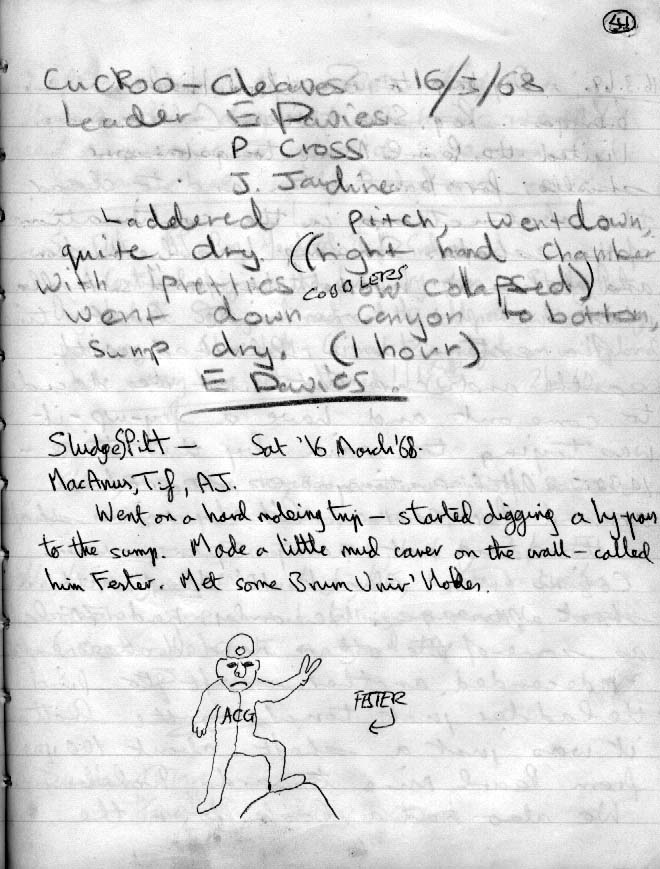 44
Cuckoo - Cleaves 16/3/68
Leader E Davies
P Cross
J. Jardine
Laddered pitch, went down,
quite dry. ((right hand chamber
with pretties now colapsed)
COBBLERS
went down Canyon to bottom,
sump dry. (1 hour)
E Davies.
Sludge Pit — Sat '16 March '68.
MacAnus, T.f, A.J.
Went on a hard moleing trip — started digging a by pass
to the sump. Made a little mud caver on the wall — called
him Fester. Met some Brum Univ'
ACG
FESTER